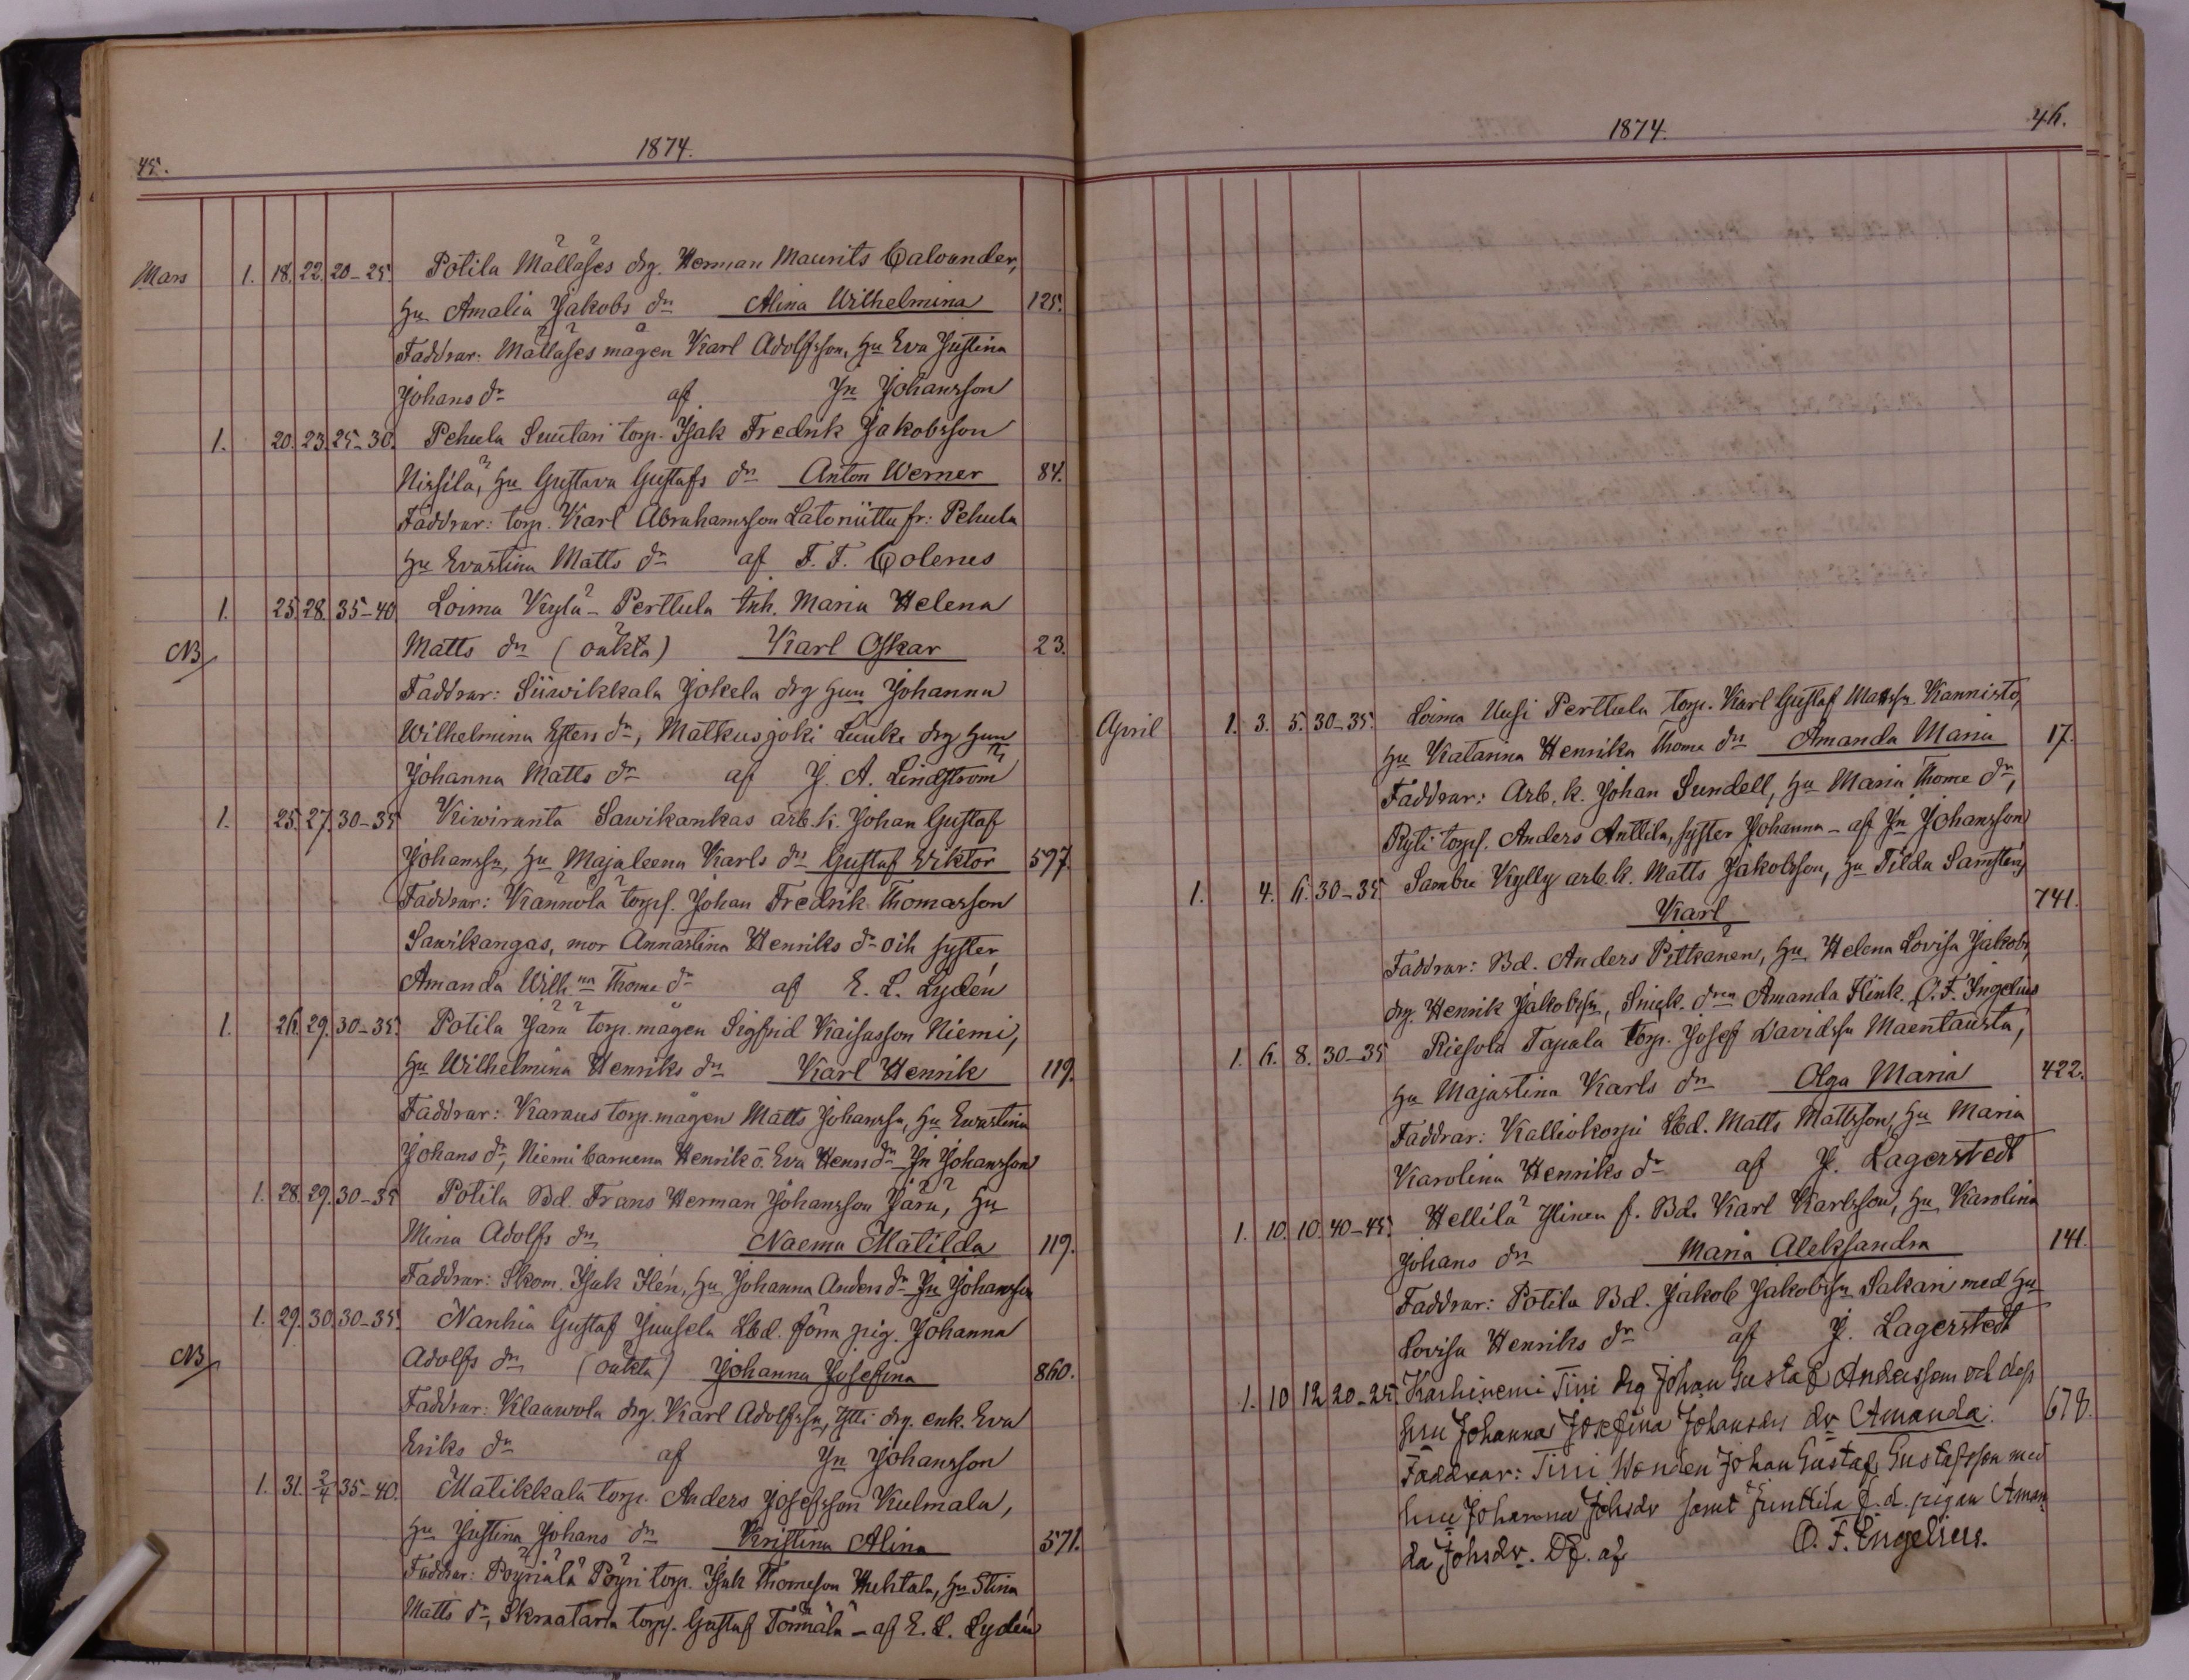 45.
1874.
Mars 1. 18. 22. 20-25. Potila Mälläses drg. Herman Maurits Calvander,
Hu Amalia Jakobs dr Alina Wilhelmina 125.
Faddrar: Mälläses mågen Karl Adolfsson, Hu Eva Justina
Johans dr af Jn Johansson
1. 20. 23. 25-30. Pehula Suutari torp. Isak Fredrik Jakobsson
Nissilä, Hu Gustava Gustafs dr Anton Werner 84.
Faddrar: torp. Karl Abrahamsson Latoniittu fr: Pehula
Hu Evastina Matts dr af F. F. Colenus
1. 25. 28. 35-40 Loima Kylä-Perttula Inh. Maria Helena
NB Matts dr (oäkta) Karl Oskar 23.
Faddrar: Siiwikkala Jokela drg hun Johanna
Wilhelmina Esters dr, Matkusjoki Luuke drg hun
Johanna Matts dr af J. A. Lindström
1. 25. 27. 30-35 Kiwiranta Sawikankas arb. k. Johan Gustaf
Johanssn, Hu Majaleena Karls dr Gustaf Viktor 597.
Faddrar: Kännölä torps. Johan Fredrik Thomasson
Sawikangas, mor Annastina Henriks dr och syster
Amanda Wilhna Thome dr af E. L. Lydén
1. 26. 29. 30-35. Potila Järä torp. mågen Sigfrid Kaisasson Niemi,
Hu Wilhelmina Henriks dr Karl Henrik 119.
Faddrar: Karaus torp. mågen Matts Johanssn, Hu Ewastina
Johans dr, Niemi barnena Henrik o. Eva Henrs dr Jn Johansson
1. 28. 29. 30-35 Potila Bd. Frans Herman Johansson Järä, Hu
Mina Adolfs dr Naema Matilda 119.
Faddrar: Skom. Isak Ilén, Hu Johanna Anders dr Jn Johansson
1. 29. 30. 30-35. Nanhia Gustaf Juusela Lbd. förra pig. Johanna
NB Adolfs dr (oäkta) Johanna Josefina 860.
Faddrar: Klaawola drg. Karl Adolfssn, Ylli drg. enk. Eva
Eriks dr af Jn Johansson
1. 31. 2/4 35-40. Matikkala torp. Anders Josefsson Kulmala,
Hu Justina Johans dr Kristina Alina 571.
Faddrar: Pöyriälä Pöyri torp. Isak Thomeson Huhtala, Hu Stina
Matts dr, Skraatarla torps. Gustaf Törmälä - af E. L. Lydén
1874.
46.
April 1. 3. 5. 30-35. Loima Uusi Perttula torp. Karl Gustaf Mattssn. Kannisto,
Hu Katarina Henrika Thome dr Amanda Maria 17.
Faddrar: Arb. k. Johan Sundell, Hu Maria Thome dr,
Ryti torps. Anders Anttila, syster Johanna - af Jn Johansson
1. 4. 6. 30-35. Sambu Kylly arb. k. Matts Jakobsson, Hu Tilda Samstén,
Karl 741.
Faddrar: Bd. Anders Pitkänen, Hu Helena Lovisa Jakobs,
drg. Henrik Jakobssn, Snick. drn Amanda Flink. O. F. Yngelius
1. 6. 8. 30-35 Riesola Tapala torp. Josef Davidssn Maentausta,
Hu Majastina Karls dr Olga Maria 422.
Faddrar: Kalliokorpi Lbd. Matts Mattsson, Hu Maria
Karolina Henriks dr af J. Lagerstedt
1. 10. 10. 40-45. Hellilä Ylinen f. Bd. Karl Karlsson, Hu Karolina
Johans dr Maria Aleksandra 141.
Faddrar: Potila Bd. Jakob Jakobssn Sakari med Hu
Lovisa Henriks dr af J. Lagerstedt
1. 10 12 20-25. Karhiniemi Tiri drg Johan Gustaf Andersson och dess
hu Johanna Josefina Johansdr dr Amanda. 678.
Faddrar: Tiri Bonden Johan Gustaf Gustafsson med
hu Johanna Johsdr samt Junttila f. d. pigan Aman
da Johsdr. Df. af O. F. Engelius.